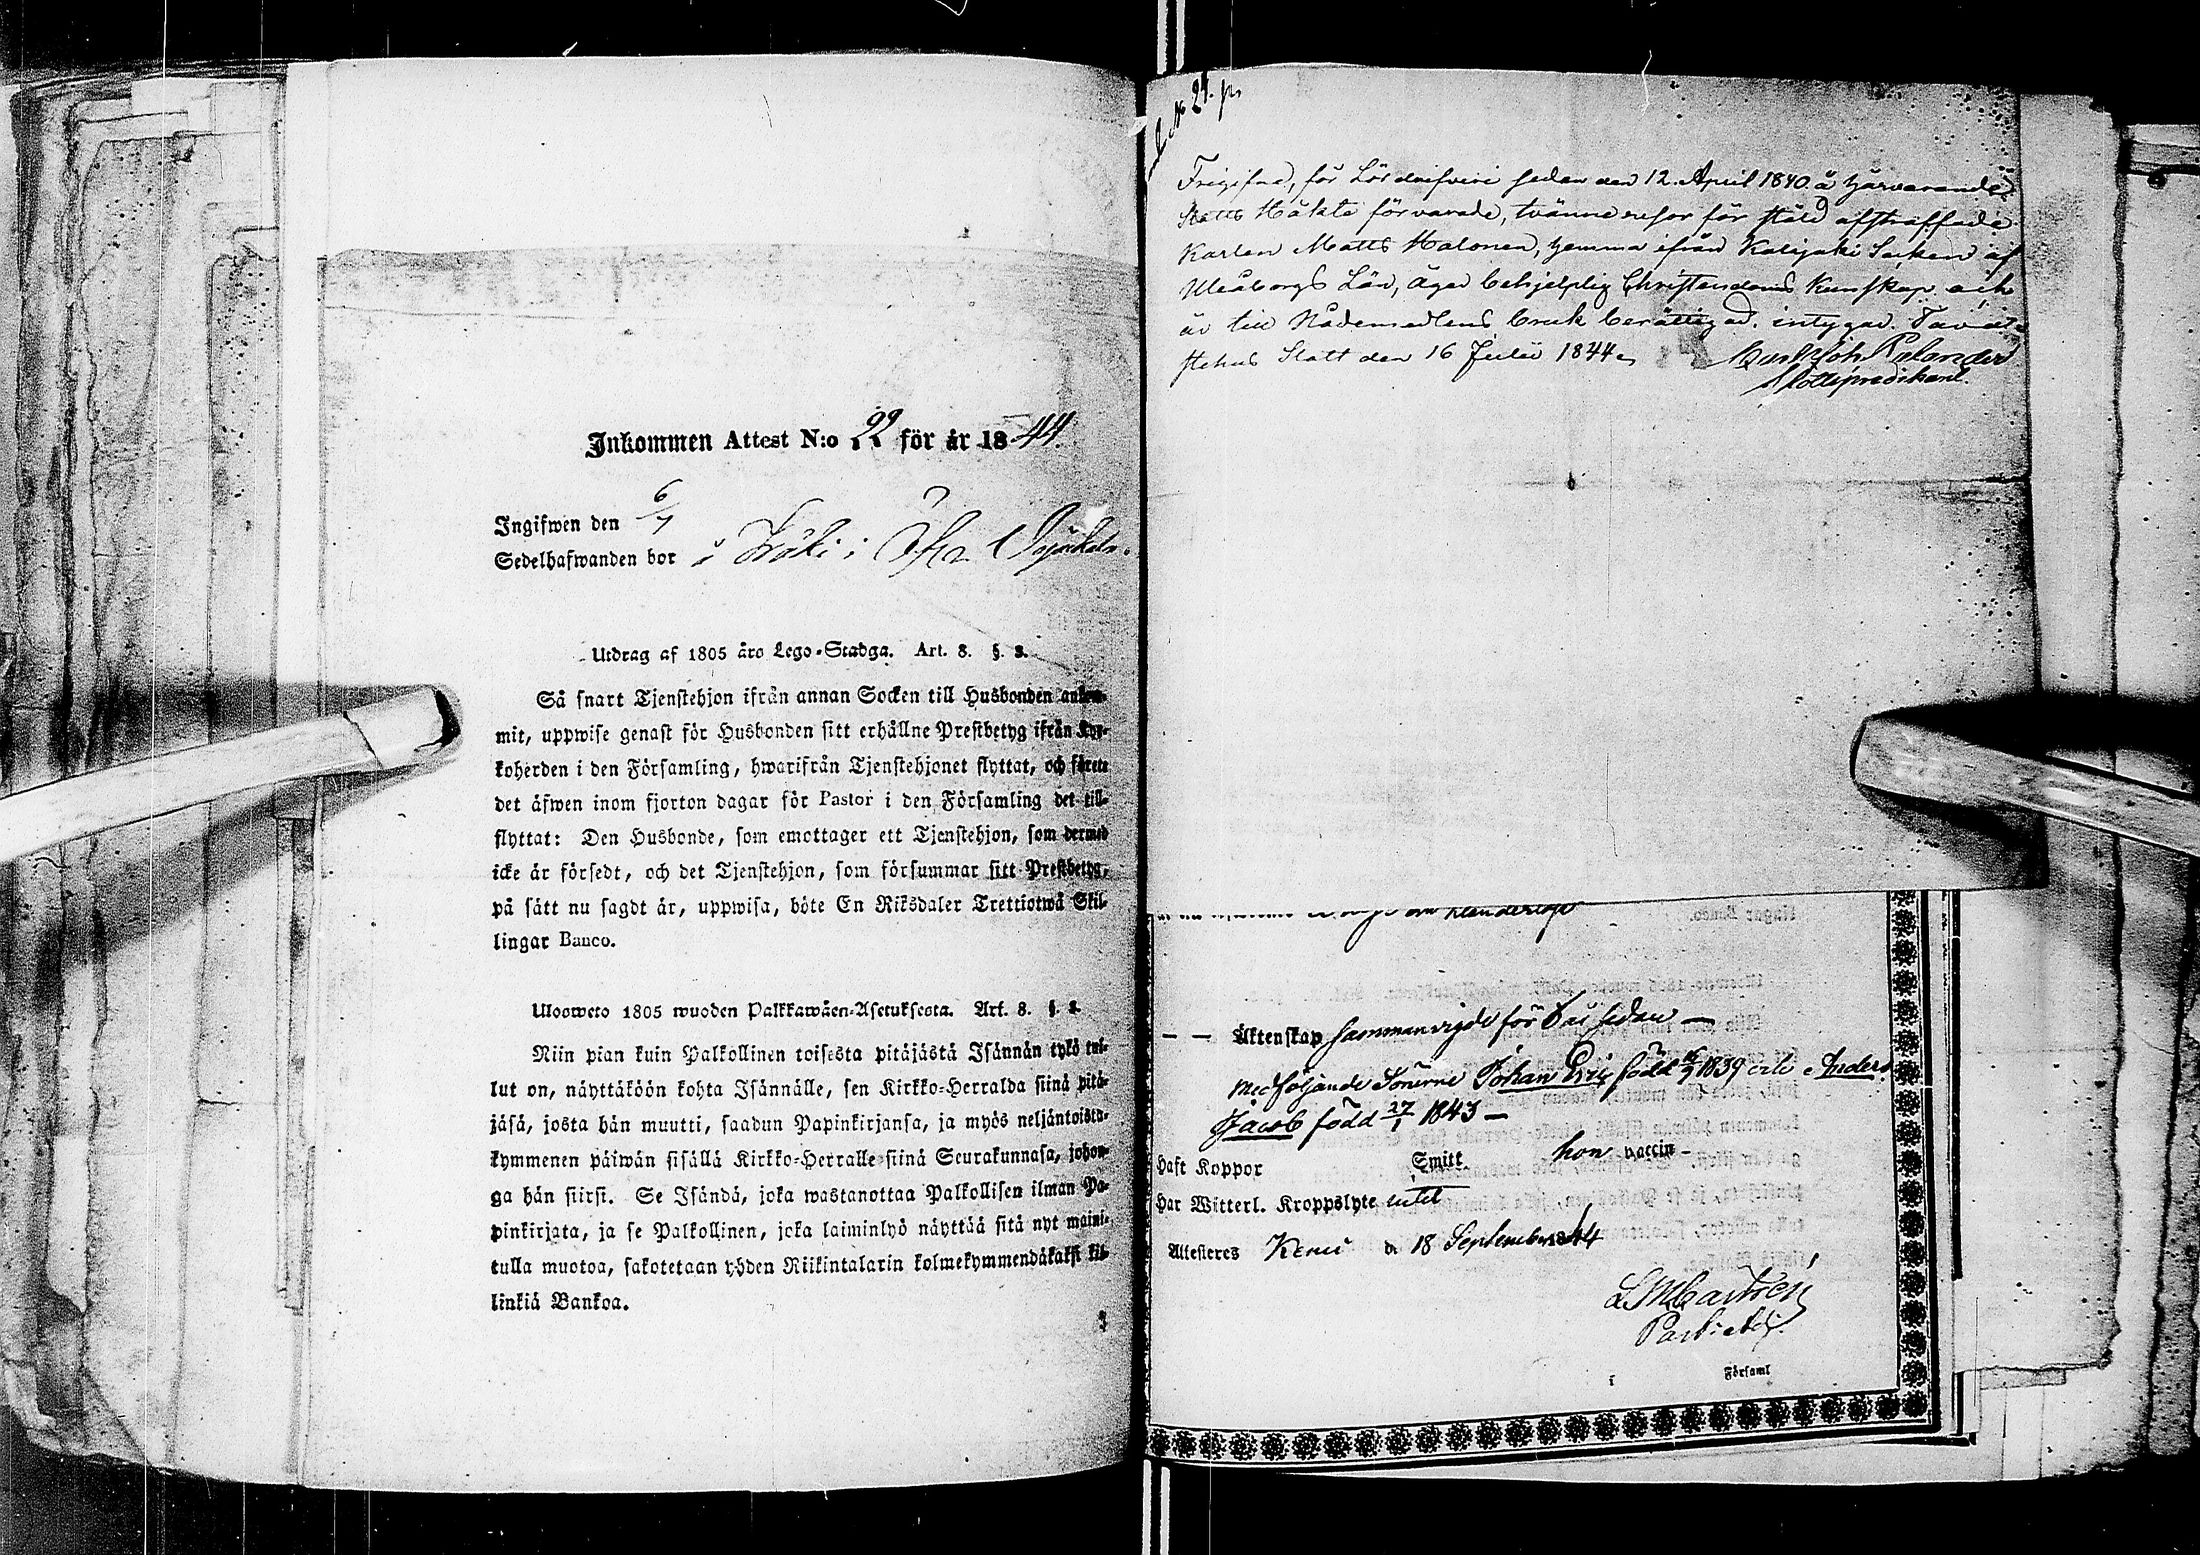 Inkommen Attest N:o 22 för år 1844.
Ingifwen den 6/7
Sedelhafwanden bor i
Utdrag af 1805 års Lego-Stadga. Art. 8. §. 3.
Så snart Tjenstehjon ifrån annan Socken till Husbonden ankom-
mit, uppwise genast för Husbonden sitt erhållne Prestbetyg ifrån Kyr-
koherden i den Församling, hwarifrån Tjenstehjonet flyttat, och förete
det äfwen inom fjorton dagar för Pastor i den Församling det till-
flyttat: Den Husbonde, som emottager ett Tjenstehjon, som dermed
icke är försedt, och det Tjenstehjon, som försummar sitt Prestbetyg,
på sätt nu sagdt är, uppwisa, böte En Riksdaler Trettiotwå Skil-
lingar Banco.
Ulosweto 1805 wuoden Palkkawäen-Asetuksesta. Art. 8. §. 3.
Niin pian kuin Palkollinen toisesta pitäjästä Isännän tykö tul-
lut on, näyttäköön kohta Isännälle, sen Kirkko-Herralda siinä pitä-
jäsä, josta hän muutti, saadun Papinkirjansa, ja myös neljäntoista-
kymmenen päiwän sisällä Kirkko-Herralle siinä Seurakunnasa, johon-
ga hän siirsi. Se Isändä, joka wastanottaa Palkollisen ilman Pa-
pinkirjata, ja se Palkollinen, joka laiminlyö näyttää sitä nyt maini-
tulla muotoa, sakotetaan yhden Riikintalarin kolmekymmendäkaksi kil-
linkiä Bankoa.
24.
Frigifne, för Lösdrifveri sedan den 12. April 1840 å härvarande
Slotts Häkte förvarade, tvänne resor för stöld afstraffade
Karlen Matts Halonen, hemma ifrån Kalijoki Socken af
Uleåborgs Län, äger behjelplig Christendoms Kunskap och
är till Nådemedlens bruk berättigad, intygar. Tavast-
stehus Slott den 16 Julii 1844.
Slottspredikant.
Äktenskap sammanvigde för sedan —
Medföljande Sönerne Johan Eric född 1839 och Anders
Jacob född 27/1 1843 —
Haft Koppor Smitt hon vaccin —
Har Witterl. Kroppslyte intet
Attesteres Kemi d. 18 September 1844
Församl